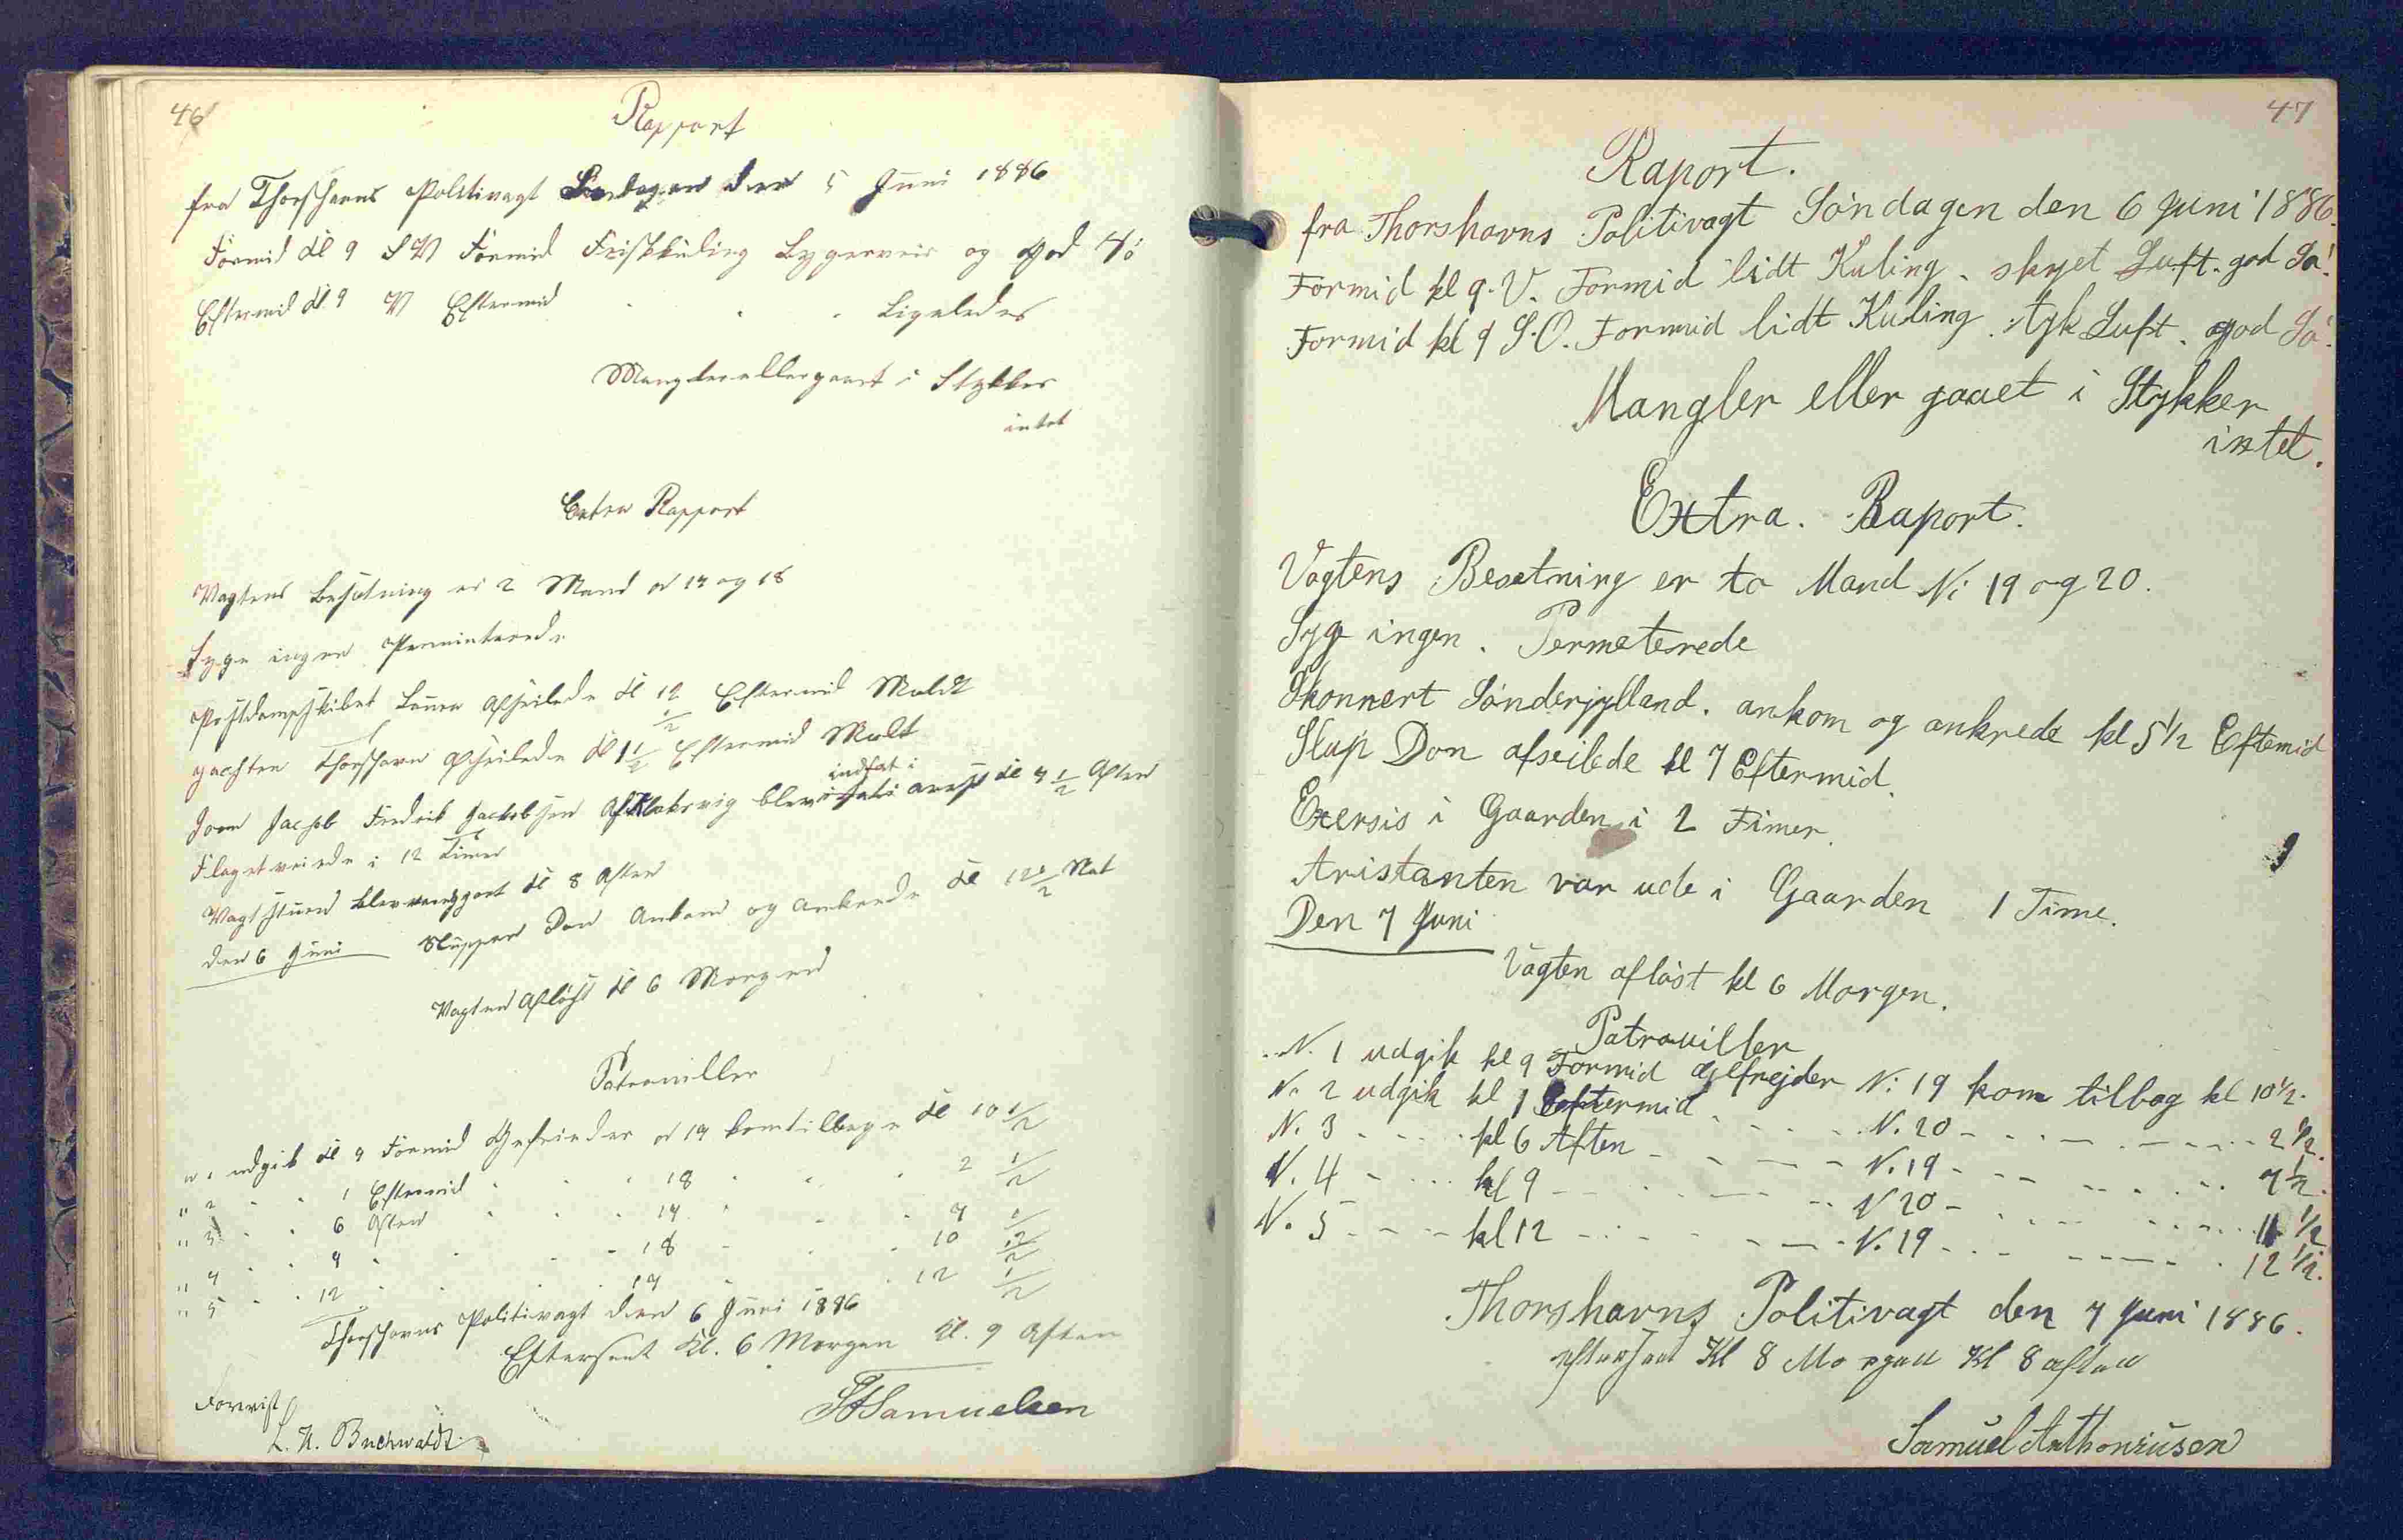 46
Rapport
fra Thorshavns Politivagt Lørdagen den 5 Juni 1886
Formid Kl 9 SV Formid Friskkuling Bygerveir og god Sö
Eftermid Kl. 9 V Eftermid Ligeledes
Mangler eller gaaet i Stykker
intet
Extra Rapport
Vagtens Besætning er 2 Mand N 17 og 18
Syge ingen Permiterede
Postdampskibet Laura Afseilede Kl 12 1/2 Eftermid Muldt
Jachten Thorshavn Afseilede Kl 1 1/2 Eftermid Mult
indsat i
Joen Jacob Fredrik Jacobsen Af Klaksvig blev arest Kl 9 1/2 Aften
Flaget veiede i 12 Timer
Vagtstuen blev reengjort Kl 8 Aften
den 6 Juni Sluppen Don Ankom og ankrede Kl 12 1/2 Nat
Vagten Afløst Kl 6 Morgen
Patrouiller
N 1 udgik Kl 9 Formid Gefreider N 17 kom tilbage Kl 10 1/2
" 2 - - 1 Eftermid - - - 18 - - - 2 1/2
" 3 - - 6 Aften - - - 17 - - - 7 1/2
" 4 - - 9 - - - 18 - - - 10 1/2
" 5 - - 12 - - - 17 - - - 12 1/2
Thorshavns Politivagt den 6 Juni 1886
Efterseet Kl. 6 Morgen Kl. 9 Aften
Forevist
L. N. Buchwaldt
Samuelsen
47
Raport.
fra Thorshavns Politivagt Söndagen den 6 Juni 1886.
Formid kl 9. V. Formid lidt Kuling. skyet Luft. god Sö.
Formid kl 9 S.O. Formid lidt Kuling. tyk Luft. god Sö.
Mangler eller gaaet i Stykker
intet.
Extra. Raport.
Vagtens Besetning er to Mand N: 19 og 20.
Syge ingen. Permeterede
Skonnert Sönderjylland. ankom og ankrede kl 5 1/2 Eftemid
Slup Don afseilede kl 7 Eftermid.
Exersis i Gaarden i 2 Timer.
Aristanten var ude i Gaarden 1 Time.
Den 7 Juni
Vagten aflöst kl 6 Morgen.
Patrouiller
N. 1 udgik kl 9 Formid gefrejder N: 19 kom tilbag kl 10 1/2.
N. 2 udgik kl 1 Eftermid - - - N. 20 - - - 2 1/2.
N. 3 - - - kl 6 Aften - - - N. 19 - - - 7 1/2.
N. 4 - - - kl 9 - - - N 20 - - - 11 1/2
N. 5 - - - kl 12 - - - N. 19 - - - 12 1/2.
Thorshavns Politivagt den 7 Juni 1886.
efterseet Kl 8 Morgen Kl 8 aften
Samuel Anthoniusen